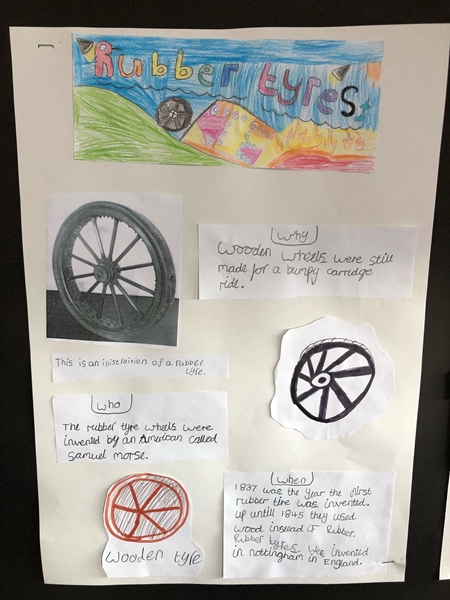 Rubber tyres
Why
Wooden wheels were still
made for a bumpy carridge
ride.
This is an illistraition of a rubber
tyre.
who
The rubber tyre wheels were
invented by an American called
Samuel morse.
Wooden tyre
When
1837 was the year the first
rubber tire was invented.
up untill 1845 they used
wood instead of Rubber.
Rubber tyres were invented
in nottingham in England.